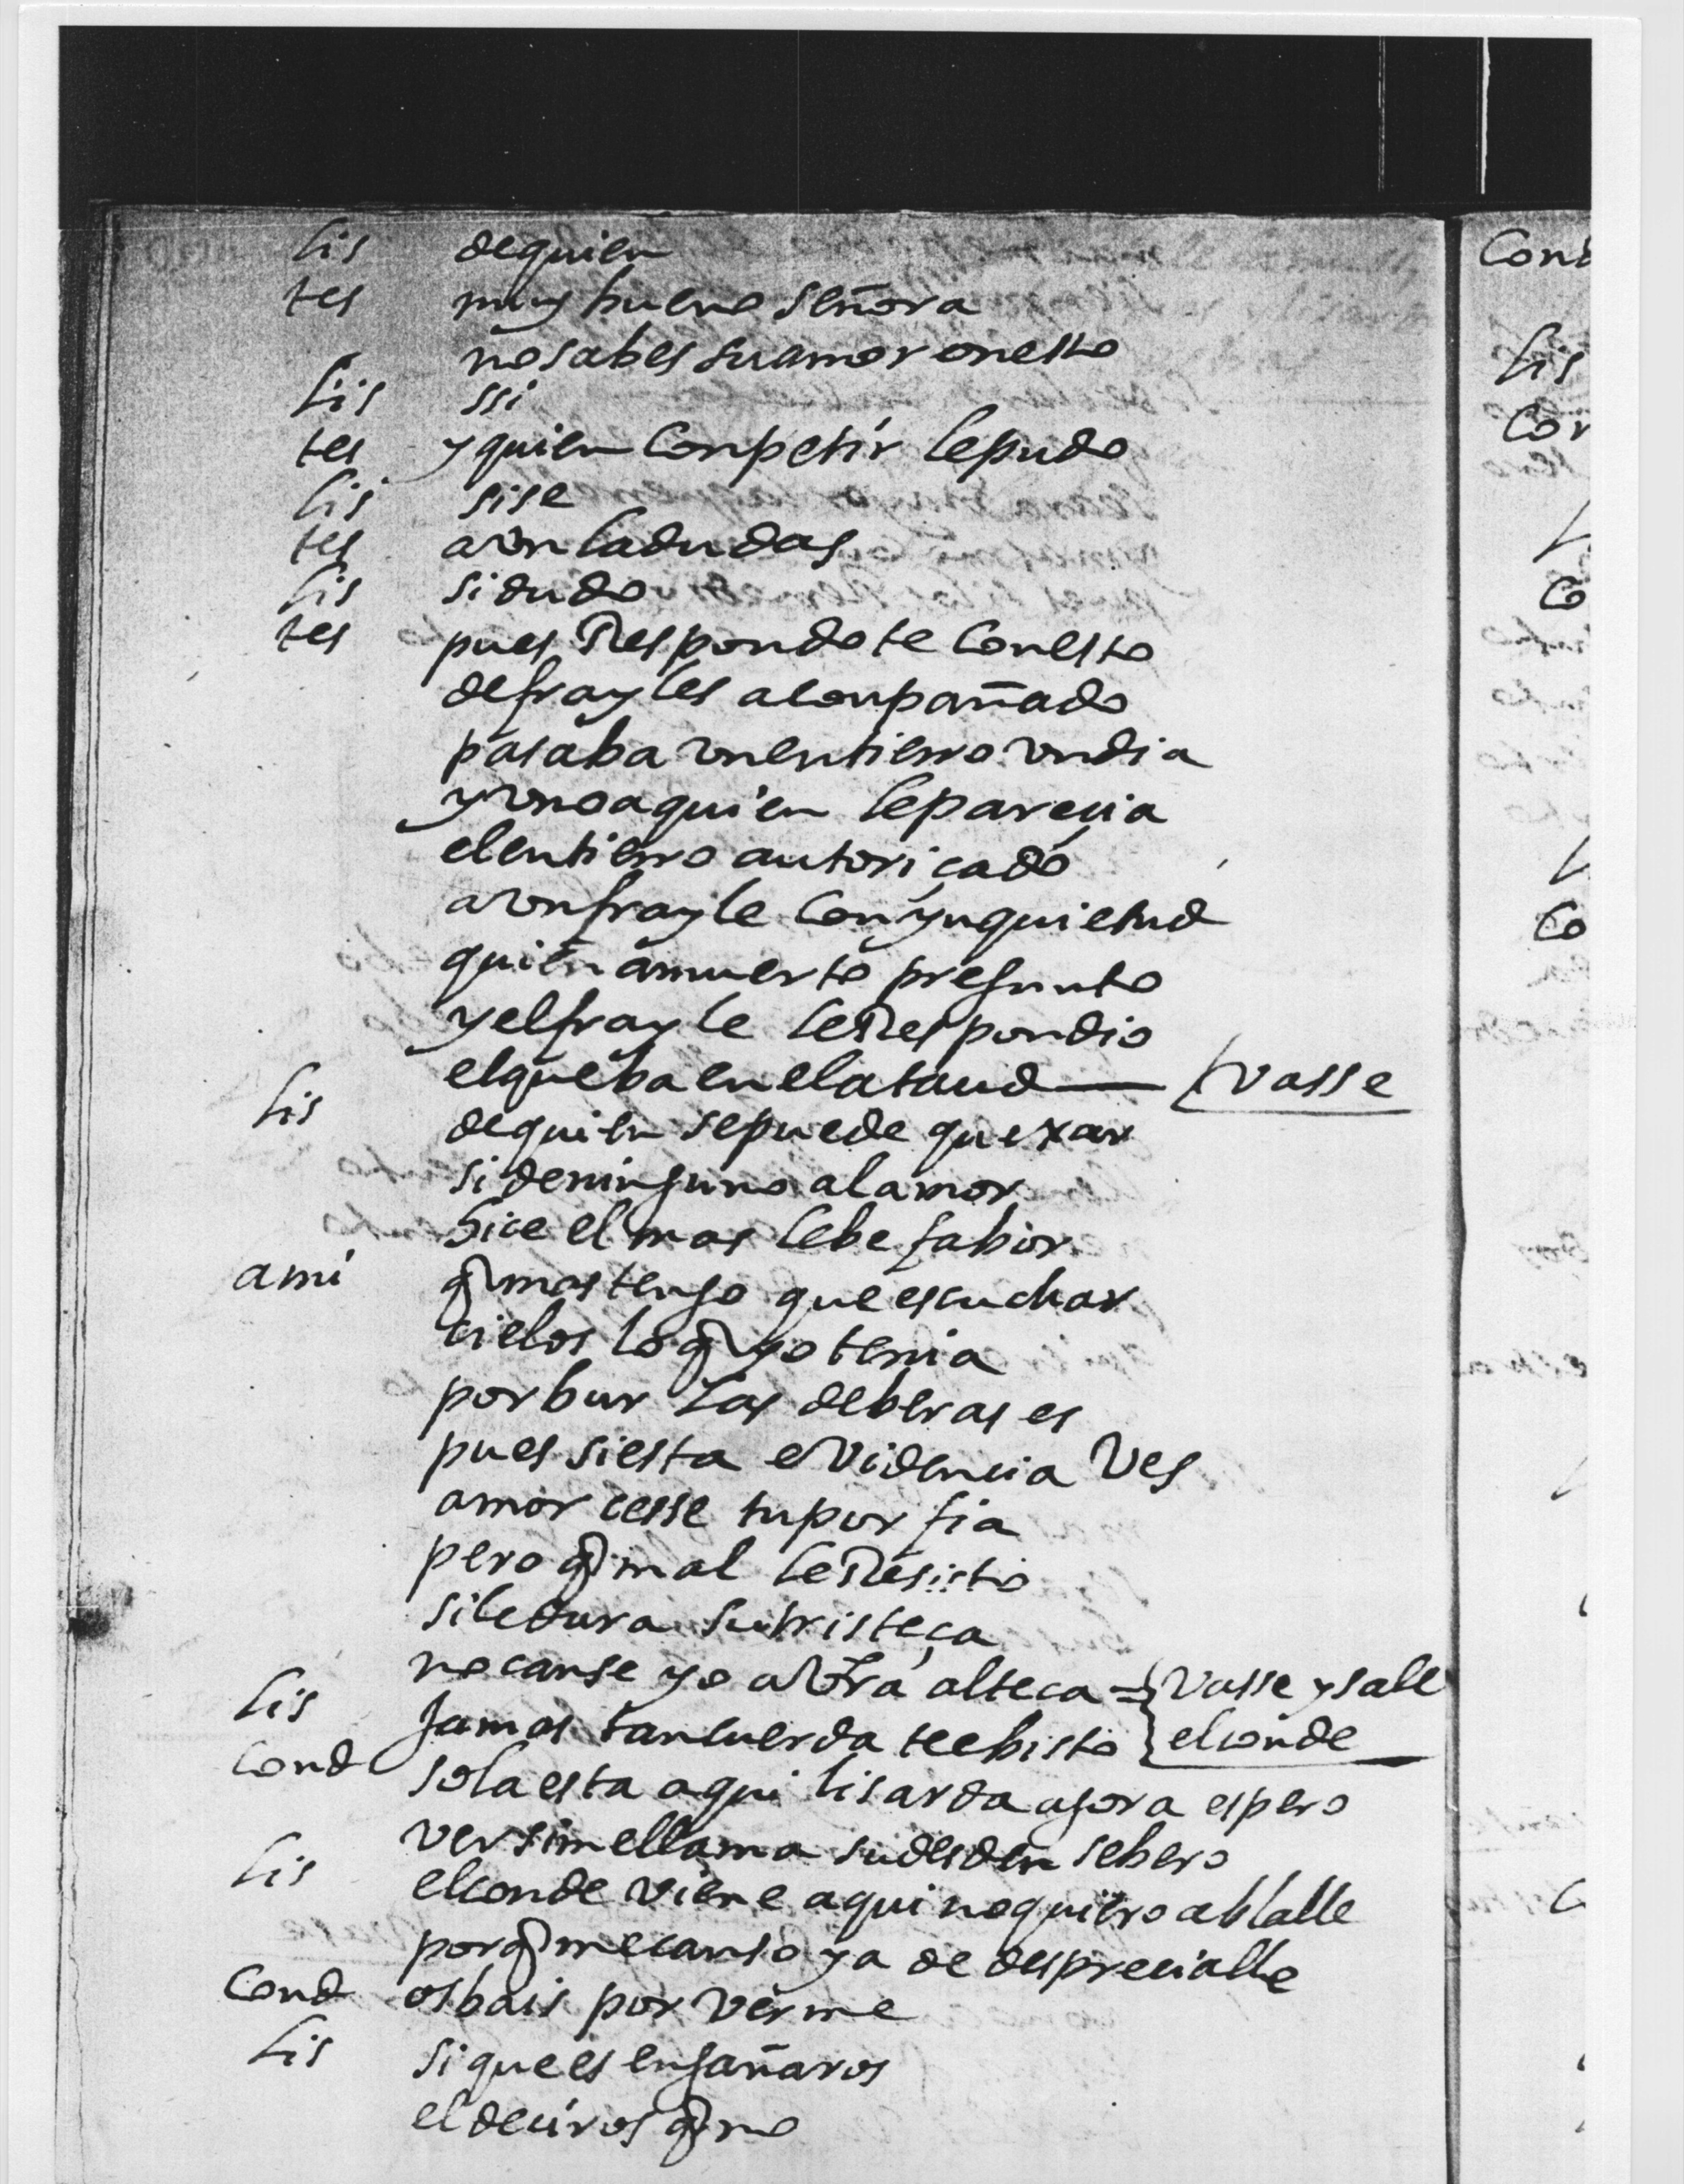 lis dequien
tes muy bueno señora
no sabes su amor onesto
lis ssi
tes y quien Conpetir lepudo
lis si se
tes aun la dudas
lis si dudo
tes pues Respondo te Con esto
de frayles aconpañado
pasaba un entierro un dia
y uno a quien le parecia
el entierro autoriçado
a un frayle Con ynquietud
quien a muerto pregunto
y el frayle le Respondio
el que ba en el ataud — vasse
lis de quien se puede quexar
si de ninguno al amor
hice el mas lebe fabor
ami q mas tengo que escuchar
cielos lo q yo tenia
por burlas de beras es
pues si esta evidencia ves
amor cesse tu porfia
pero q mal le Resisto
si le dura su tristeça
no canse yo a Vra alteça = vasse y sale
lis Jamas tan cuerda te e bisto el conde
Cond sola esta aqui lisarda agora espero
ver si me llama su desden sebero
lis el conde viene aqui no quiero ablalle
porq me canso ya de desprecialle
Cond os bais por verme
lis si que es engañaros
el deciros q no
Cond
lis
Con
L
Co
L
Co